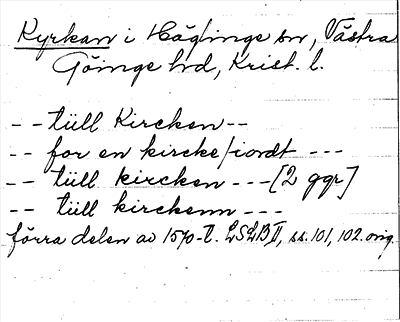 Kyrkan i Häglinge sn, Västra
Göinge hd, Krist. l.
-- tüll Kircken --
-- for en kircke/iordt ---
-- tüll kircken --- [2 ggr]
-- tüll kirckenn ---
förra delen av 1570-t. LSLB II, ss. 101, 102. orig.